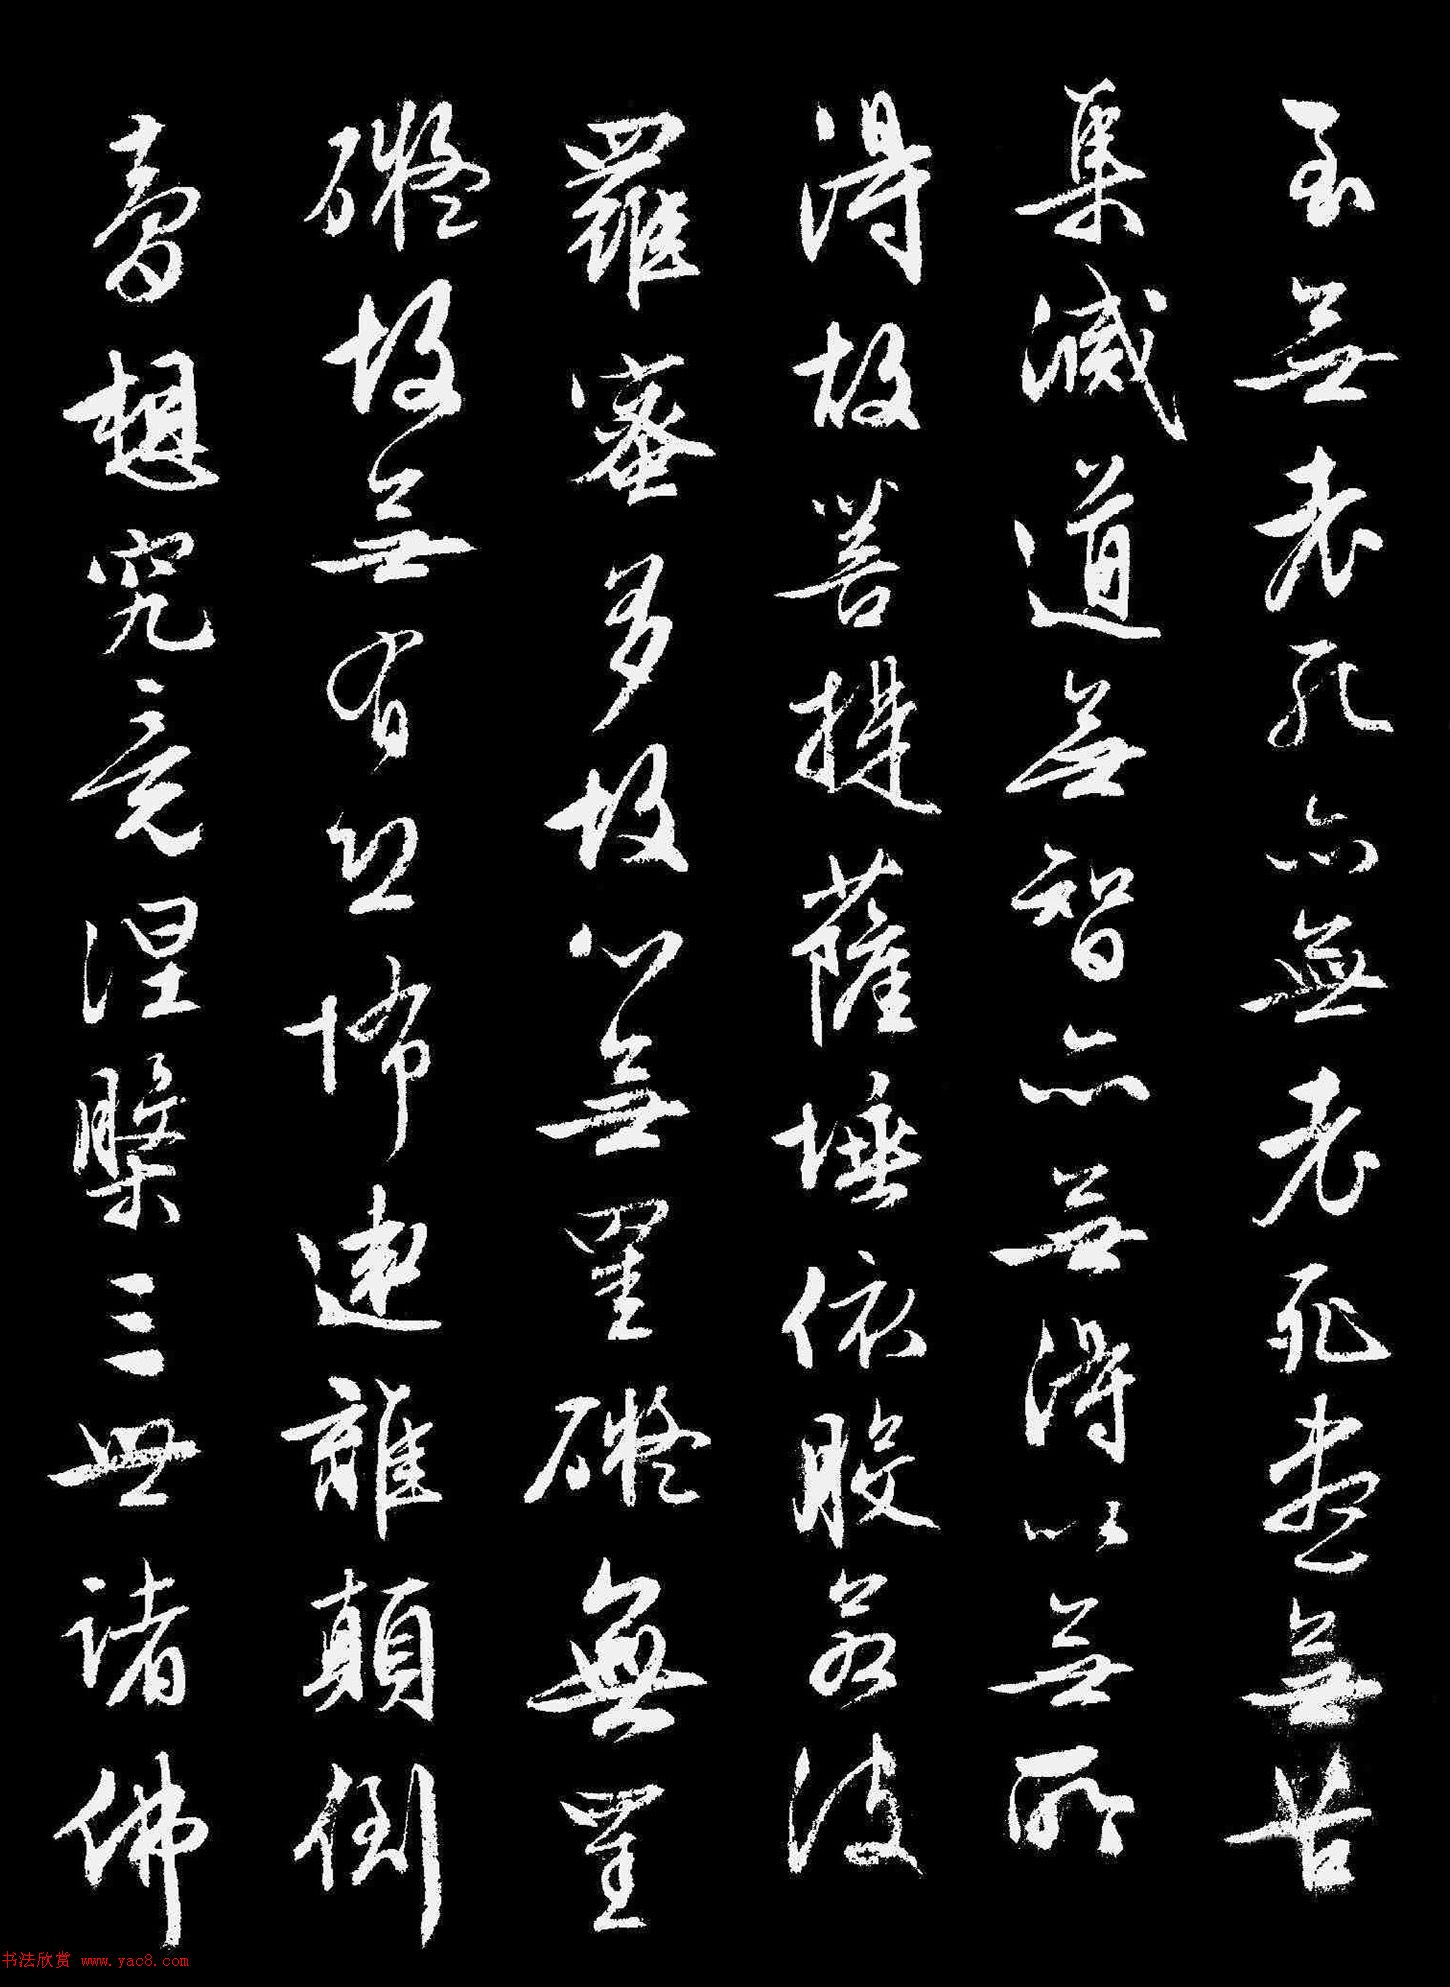 至無老死亦無老死盡無苦
集滅道無智亦無得以無所
得故菩提薩埵依般若波
羅蜜多故心無罣礙無罣
礙故無有恐怖遠離顛倒
夢想究竟涅槃三世諸佛
书法欣赏 www.yac8.com